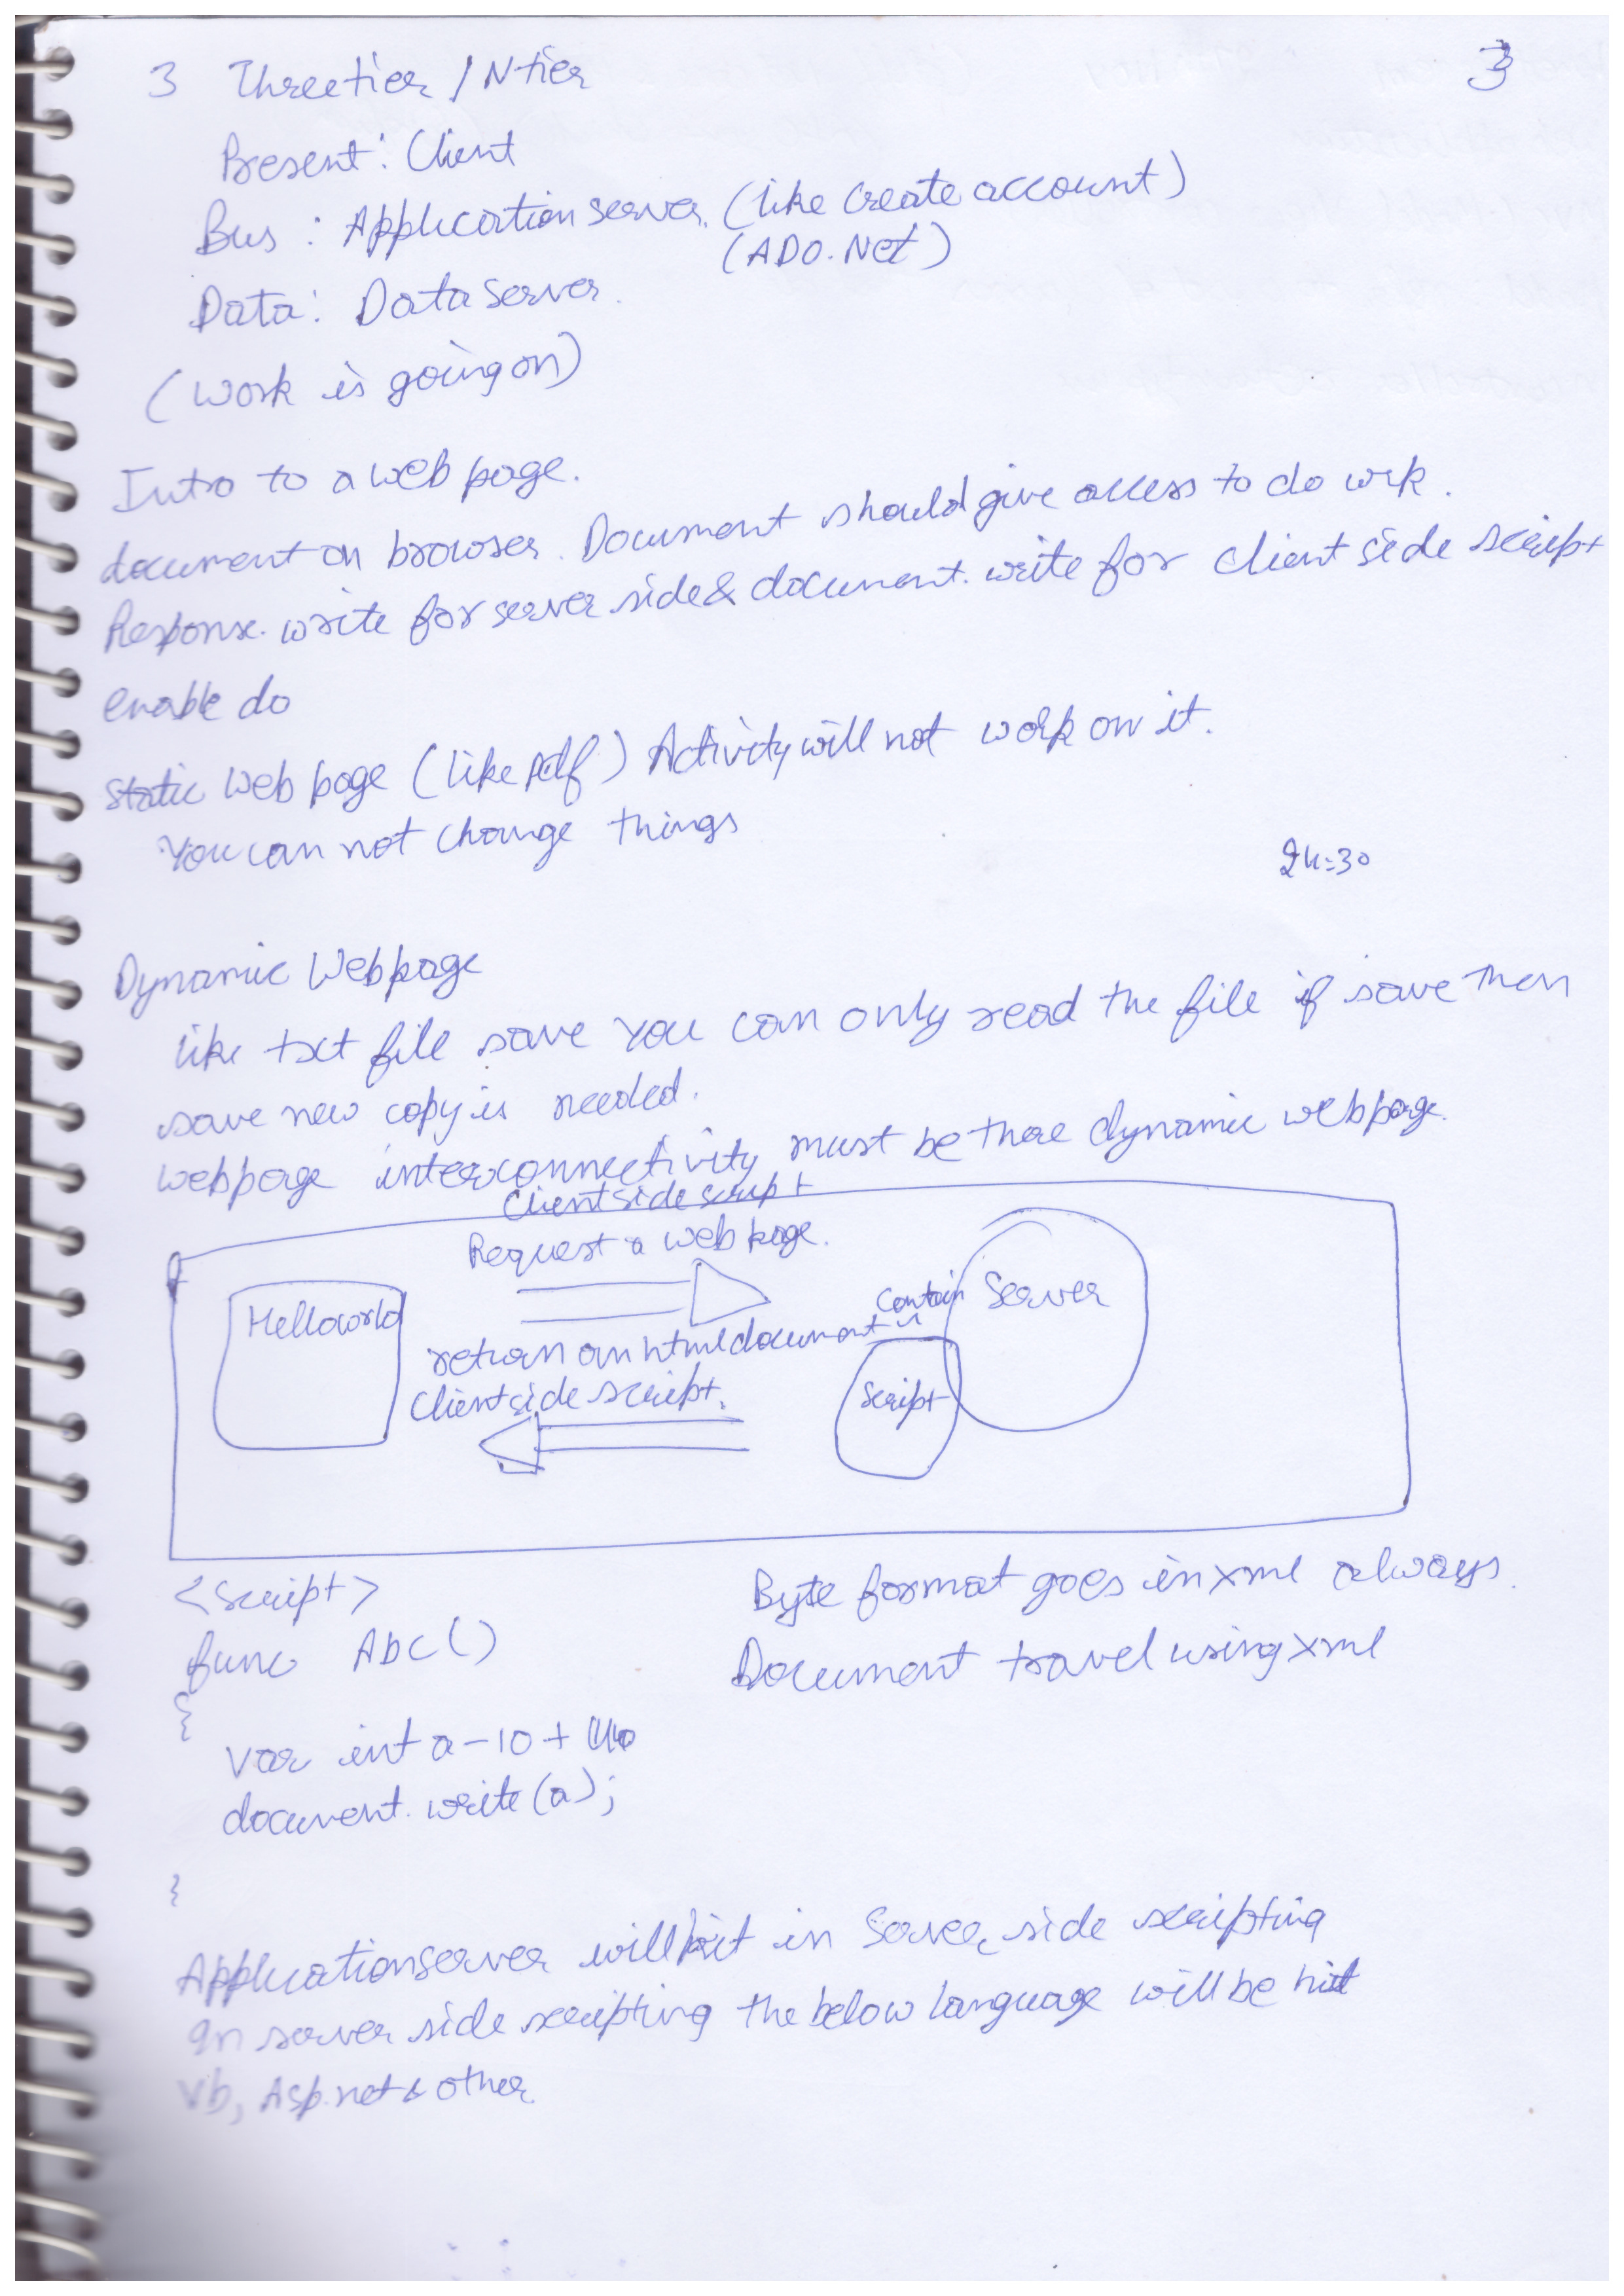 3 Three tier / N tier
3
Present : Client
Bus : Application server (like create account)
(ADO.Net)
Data : Data server.
(Work is going on)
Intro to a web page.
document on browser. Document should give access to do wrk.
Response.write for server side & document.write for client side script
enable do
Static Web page (like pdf) Activity will not work on it.
You can not change things
=30
Dynamic Webpage
like txt file save you can only read the file if save then
save new copy is needed.
webpage interconnectivity must be there dynamic webpage.
Client side script
Request a web page.
Hello world
Contain
Server
return an html document
Client side script.
Script
<script>
Byte format goes in xml always.
func Abc()
Document travel using xml
{
var int a - 10 +
document.write(a);
}
Application server will hit in Server side scripting
In server side scripting the below language will be hit
Vb, Asp.net & other